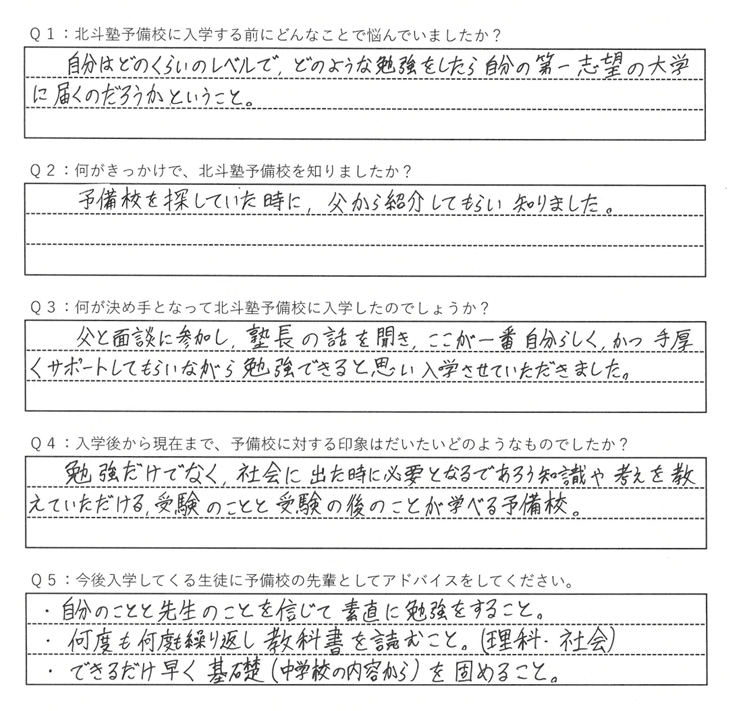 Q1：北斗塾予備校に入学する前にどんなことで悩んでいましたか？
自分はどのくらいのレベルで、どのような勉強をしたら自分の第一志望の大学
に届くのだろうかということ。
Q2：何がきっかけで、北斗塾予備校を知りましたか？
予備校を探していた時に、父から紹介してもらい知りました。
Q3：何が決め手となって北斗塾予備校に入学したのでしょうか？
父と面談に参加し、塾長の話を聞き、ここが一番自分らしく、かつ手厚
くサポートしてもらいながら勉強できると思い入学させていただきました。
Q4：入学後から現在まで、予備校に対する印象はだいたいどのようなものでしたか？
勉強だけでなく、社会に出た時に必要となるであろう知識や考えを教
えていただける、受験のことと受験の後のことが学べる予備校。
Q5：今後入学してくる生徒に予備校の先輩としてアドバイスをしてください。
・自分のことと先生のことを信じて素直に勉強をすること。
・何度も何度も繰り返し教科書を読むこと。(理科・社会)
・できるだけ早く基礎(中学校の内容から)を固めること。